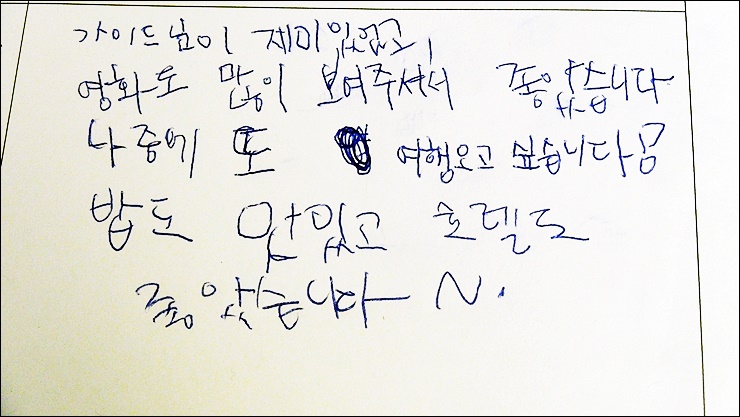 가이드님이 재미있었고,
영화도 많이 보여주셔서 좋았습니다
나중에 또 여행오고 싶습니다!
밥도 맛있고 호텔도
좋았습니다 ~.